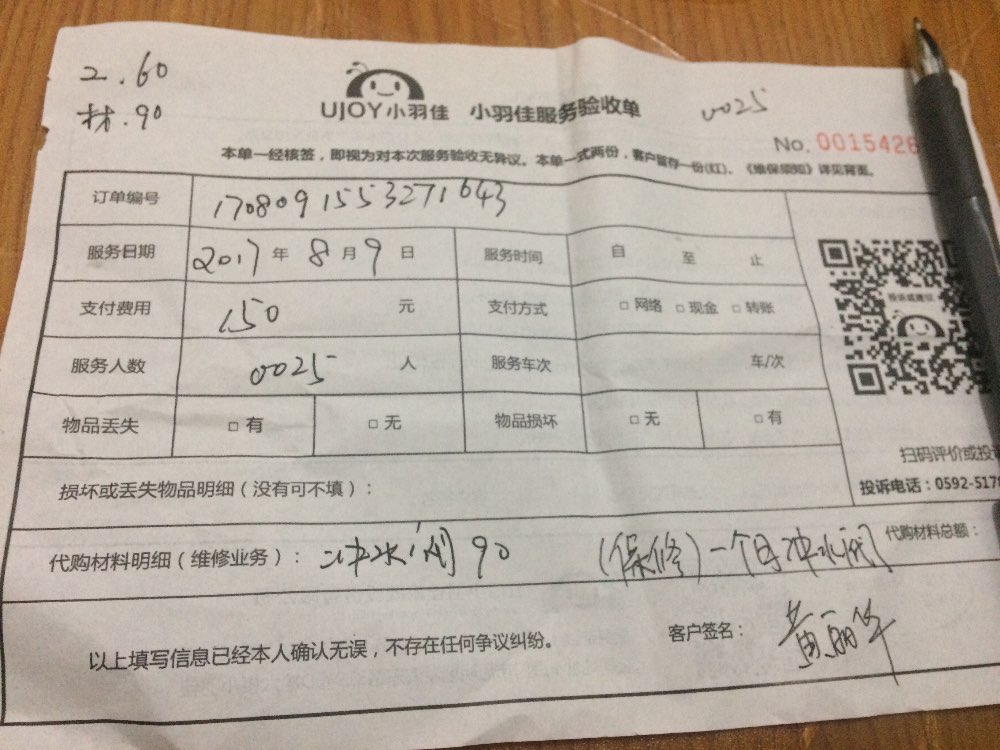 2.60
材.90
UJOY小羽佳 小羽佳服务验收单
0025
No. 0015426
本单一经核签，即视为对本次服务验收无异议。本单一式两份，客户留存一份(红)。《维保须知》详见背面。
订单编号 1708091553271643
服务日期 2017 年 8 月 9 日 服务时间 自 至 止
支付费用 150 元 支付方式 □ 网络 □ 现金 □ 转账
服务人数 0025 人 服务车次 车/次
物品丢失 □ 有 □ 无 物品损坏 □ 无 □ 有
投诉或建议
扫码评价或投
投诉电话：0592-517
损坏或丢失物品明细（没有可不填）：
代购材料明细（维修业务）： 冲水阀 90 （保修）一个月冲水阀 代购材料总额：
以上填写信息已经本人确认无误，不存在任何争议纠纷。 客户签名： 黄丽华